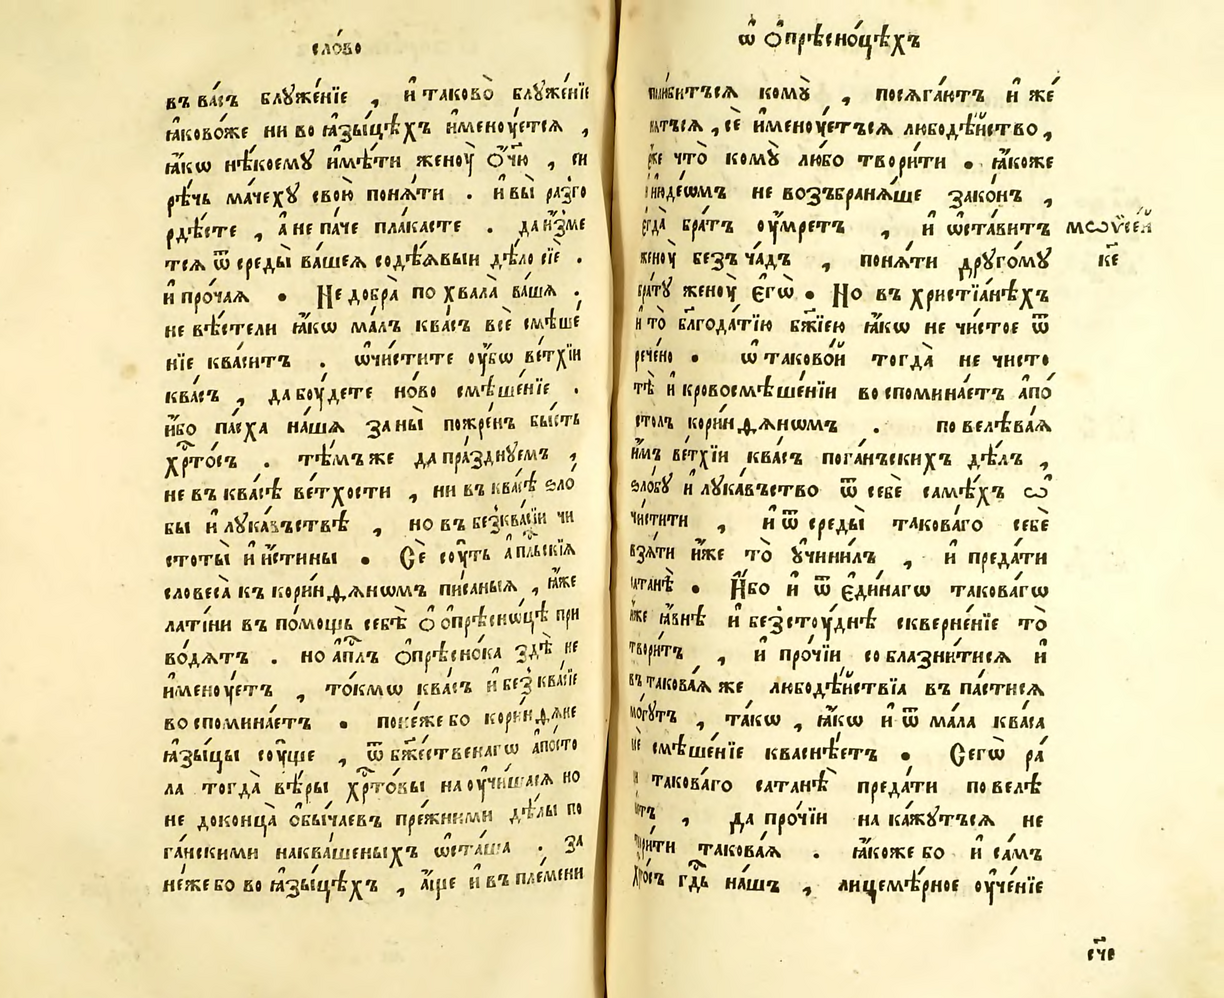 сло́во
въ ва́съ блꙋже́нїе , и҆ таково̀ блꙋже́нїе
ꙗ҆ково́же ни во ꙗ҆зы́цѣхъ и҆менꙋ́ется ,
ꙗ҆́кѡ нѣ́коемꙋ и҆мѣ́ти женоу̀ ѻ҆́чю , си
рѣ́чь ма́чехꙋ свою̀ поня́ти . и҆ вы̀ разго
рдѣ́сте , а҆ не па́че пла́касте . да и҆́зме
тся ѿ среды̀ ва́шея содѣ́ѧвыи дѣ́ло сїѐ .
и҆ про́чая • Не добра̀ по хвала̀ ва́ша .
не вѣ́стели ꙗ҆́кѡ ма́лъ ква́съ всѐ смѣше́
нїе ква́ситъ . ѡ҆чи́стите оу҆́бѡ ве́тхїи
ква́съ , да боу́дете но́во смѣше́нїе .
и҆́бо па́сха на́ша за ны̀ пожре́нъ бы́сть
хрⷭ҇то́съ . тѣ́мъ же да пра́зднуемъ ,
не въ ква́сѣ ве́тхости , ни въ ква́сѣ ѕло́
бы и҆ лꙋка́въствѣ , но въ безква́сїи чи
стоты̀ и҆ и҆́стины • Сѐ соу́ть а҆пⷭ҇льскїѧ
словеса̀ къ корин̾ѳѧнѡмъ пи́саныѧ , ꙗ҆́же
лати́ни въ по́мощь себѣ̀ ѻ҆ ѻ҆прѣсноцѣ̀ при
во́дѧтъ . но а҆пⷭ҇лъ ѻ҆прѣсно́ка здѣ̀ не
и҆меноу́етъ , то́кмѡ ква́съ и҆ без̾ ква́сїе
воспомина́етъ • поне́же бо корин̾ѳѧне
ꙗ҆зы́цы соу́ще , ѿ бжⷭ҇ественагѡ а҆по́сто
ла тогда̀ вѣ́ры хрⷭ҇то́вы на оу҆чи́шасѧ но
не доконца̀ ѻ҆бы́чаевъ пре́жними дѣ́лы по
га́нскими наква́шеныхъ ѡ҆ста́ша . За
не́же бо во ꙗ҆зы́цѣхъ , а҆́ще и҆ въ пле́мени
ѡ҆ ѻ҆прѣсно́цѣхъ
комꙋ̀ , посѧга́нтъ и҆ же́
сѐ и҆меноу́етъсѧ любодѣ́йство ,
что̀ комꙋ̀ любо твори́ти • ꙗ҆́коже
не возъбранѧ́ше зако́нъ ,
егда̀ бра́тъ оу҆́мретъ , и҆ ѡ҆ста́витъ
мѡѵсе́й
женоу̀ без̾ ча́дъ , поня́ти дрꙋго́мꙋ
ке҃
бра́тꙋ женоу̀ є҆гѡ̀ • Но въ христїа́нѣхъ
и҆ то̀ бл҃года́тїю бж҃їею ꙗ҆́кѡ не чи́стое ѿ
рече́но • ѡ҆ таково́й тогда̀ не чисто
тѣ̀ и҆ кровосмѣше́нїи воспомина́етъ а҆по́
столъ корин̾ѳѧнѡмъ . повелѣва́ѧ
и҆́мъ ве́тхїи ква́съ пога́нъскихъ дѣ́лъ ,
ѕло́бꙋ и҆ лꙋка́въство ѿ себѐ самѣ́хъ ѡ҆
чи́стити , и҆ ѿ среды̀ такова́го себѐ
взѧ́ти и҆́же то̀ ᲂучини́лъ , и҆ преда́ти
сатанѣ̀ • И҆́бо и҆ ѿ є҆ди́нагѡ такова́гѡ
и҆́же ꙗ҆́внѣ и҆ безстоу́днѣ скверне́нїе то̀
твори́тъ , и҆ про́чїи соблазни́тисѧ и҆
въ такова́ѧ же любодѣ́йствїѧ въ па́стисѧ
мо́гꙋтъ , та́кѡ , ꙗ҆́кѡ и҆ ѿ ма́ла ква́са
всѐ смѣше́нїе квасиѣ́етъ • Сегѡ̀ ра́
такова́го сатанѣ̀ преда́ти повелѣ̀
, да про́чїи на ка́жꙋтъсѧ не
твори́ти такова́ѧ . ꙗ҆́коже бо и҆ са́мъ
хрⷭ҇то́съ гдⷭ҇ь на́шъ , лицемѣ́рное оу҆че́нїе
є҆́же